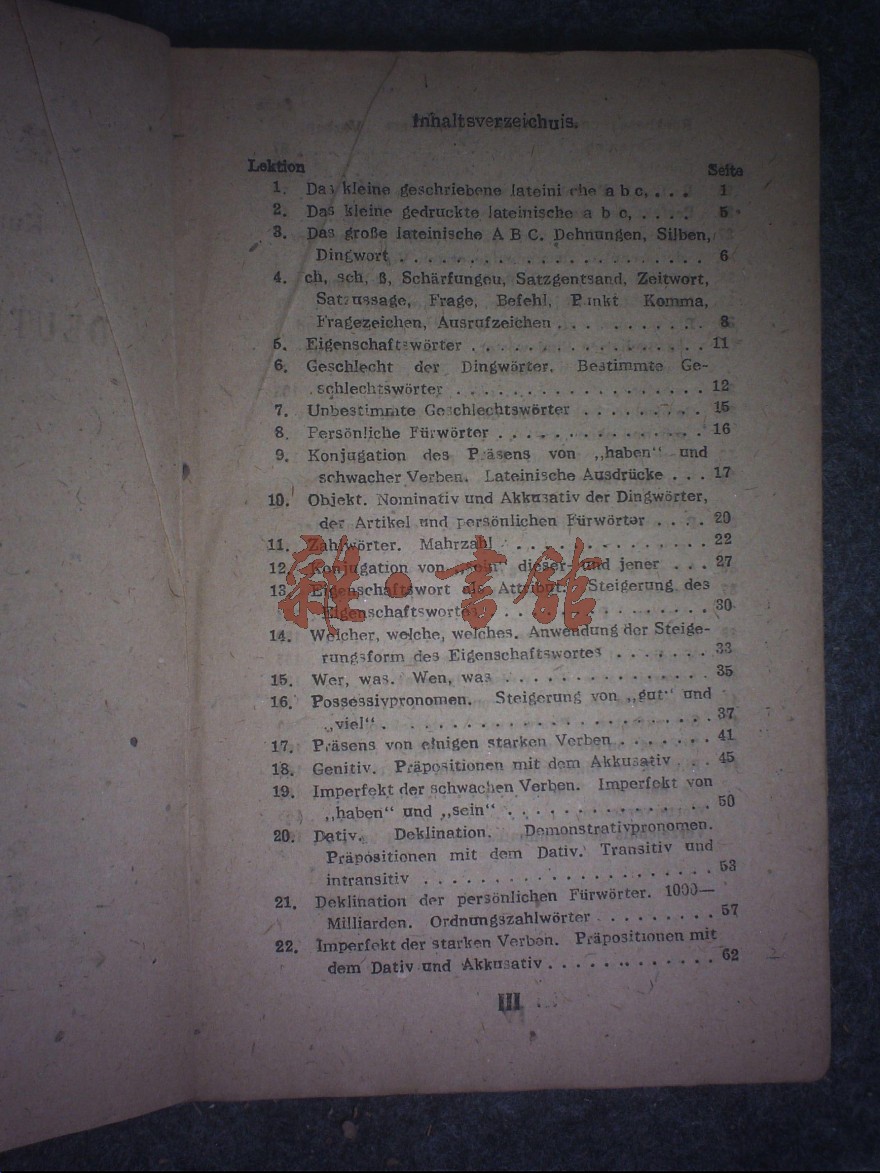 Inhaltsverzeichuis.
Lektion Seite
1. Das kleine geschriebene lateini che a b c, . . . 1
2. Das kleine gedruckte lateinische a b c, . . . . 5
3. Das große lateinische A B C. Dehnungen, Silben,
Dingwort . . . . . . . . . . . . . . . . . . 6
4. ch, sch, ß, Schärfungeu, Satzgentsand, Zeitwort,
Satzussage, Frage, Befehl, Punkt Komma,
Fragezeichen, Ausrufzeichen . . . . . . . . . . 8
5. Eigenschaftswörter . . . . . . . . . . . . . . 11
6. Geschlecht der Dingwörter. Bestimmte Ge-
schlechtswörter . . . . . . . . . . . . . . . . 12
7. Unbestimmte Geschlechtswörter . . . . . . . . . 15
8. Persönliche Fürwörter . . . . . . . . . . . . . 16
9. Konjugation des Präsens von „haben“ und
schwacher Verben. Lateinische Ausdrücke . . . 17
10. Objekt. Nominativ und Akkusativ der Dingwörter,
der Artikel und persönlichen Fürwörter . . . . 20
11. Zahlwörter. Mahrzahl . . . . . . . . . . . . . 22
12. Konjugation von „sein“ dieser und jener . . . 27
13. Eigenschaftswort als Attribut. Steigerung des
Eigenschaftswortes . . . . . . . . . . . . . . 30
14. Welcher, welche, welches. Anwendung der Steige-
rungsform des Eigenschaftswortes . . . . . . . 33
15. Wer, was. Wen, was . . . . . . . . . . . . . . 35
16. Possessivpronomen. Steigerung von „gut“ und
„viel“ . . . . . . . . . . . . . . . . . . . . 37
17. Präsens von einigen starken Verben . . . . . . . 41
18. Genitiv. Präpositionen mit dem Akkusativ . . . 45
19. Imperfekt der schwachen Verben. Imperfekt von
„haben“ und „sein“ . . . . . . . . . . . . . . 50
20. Dativ. Deklination. Demonstrativpronomen.
Präpositionen mit dem Dativ. Transitiv und
intransitiv . . . . . . . . . . . . . . . . . . 53
21. Deklination der persönlichen Fürwörter. 1000—
Milliarden. Ordnungszahlwörter . . . . . . . . . 57
22. Imperfekt der starken Verben. Präpositionen mit
dem Dativ und Akkusativ . . . . . . . . . . . . 62
III
雜·書館